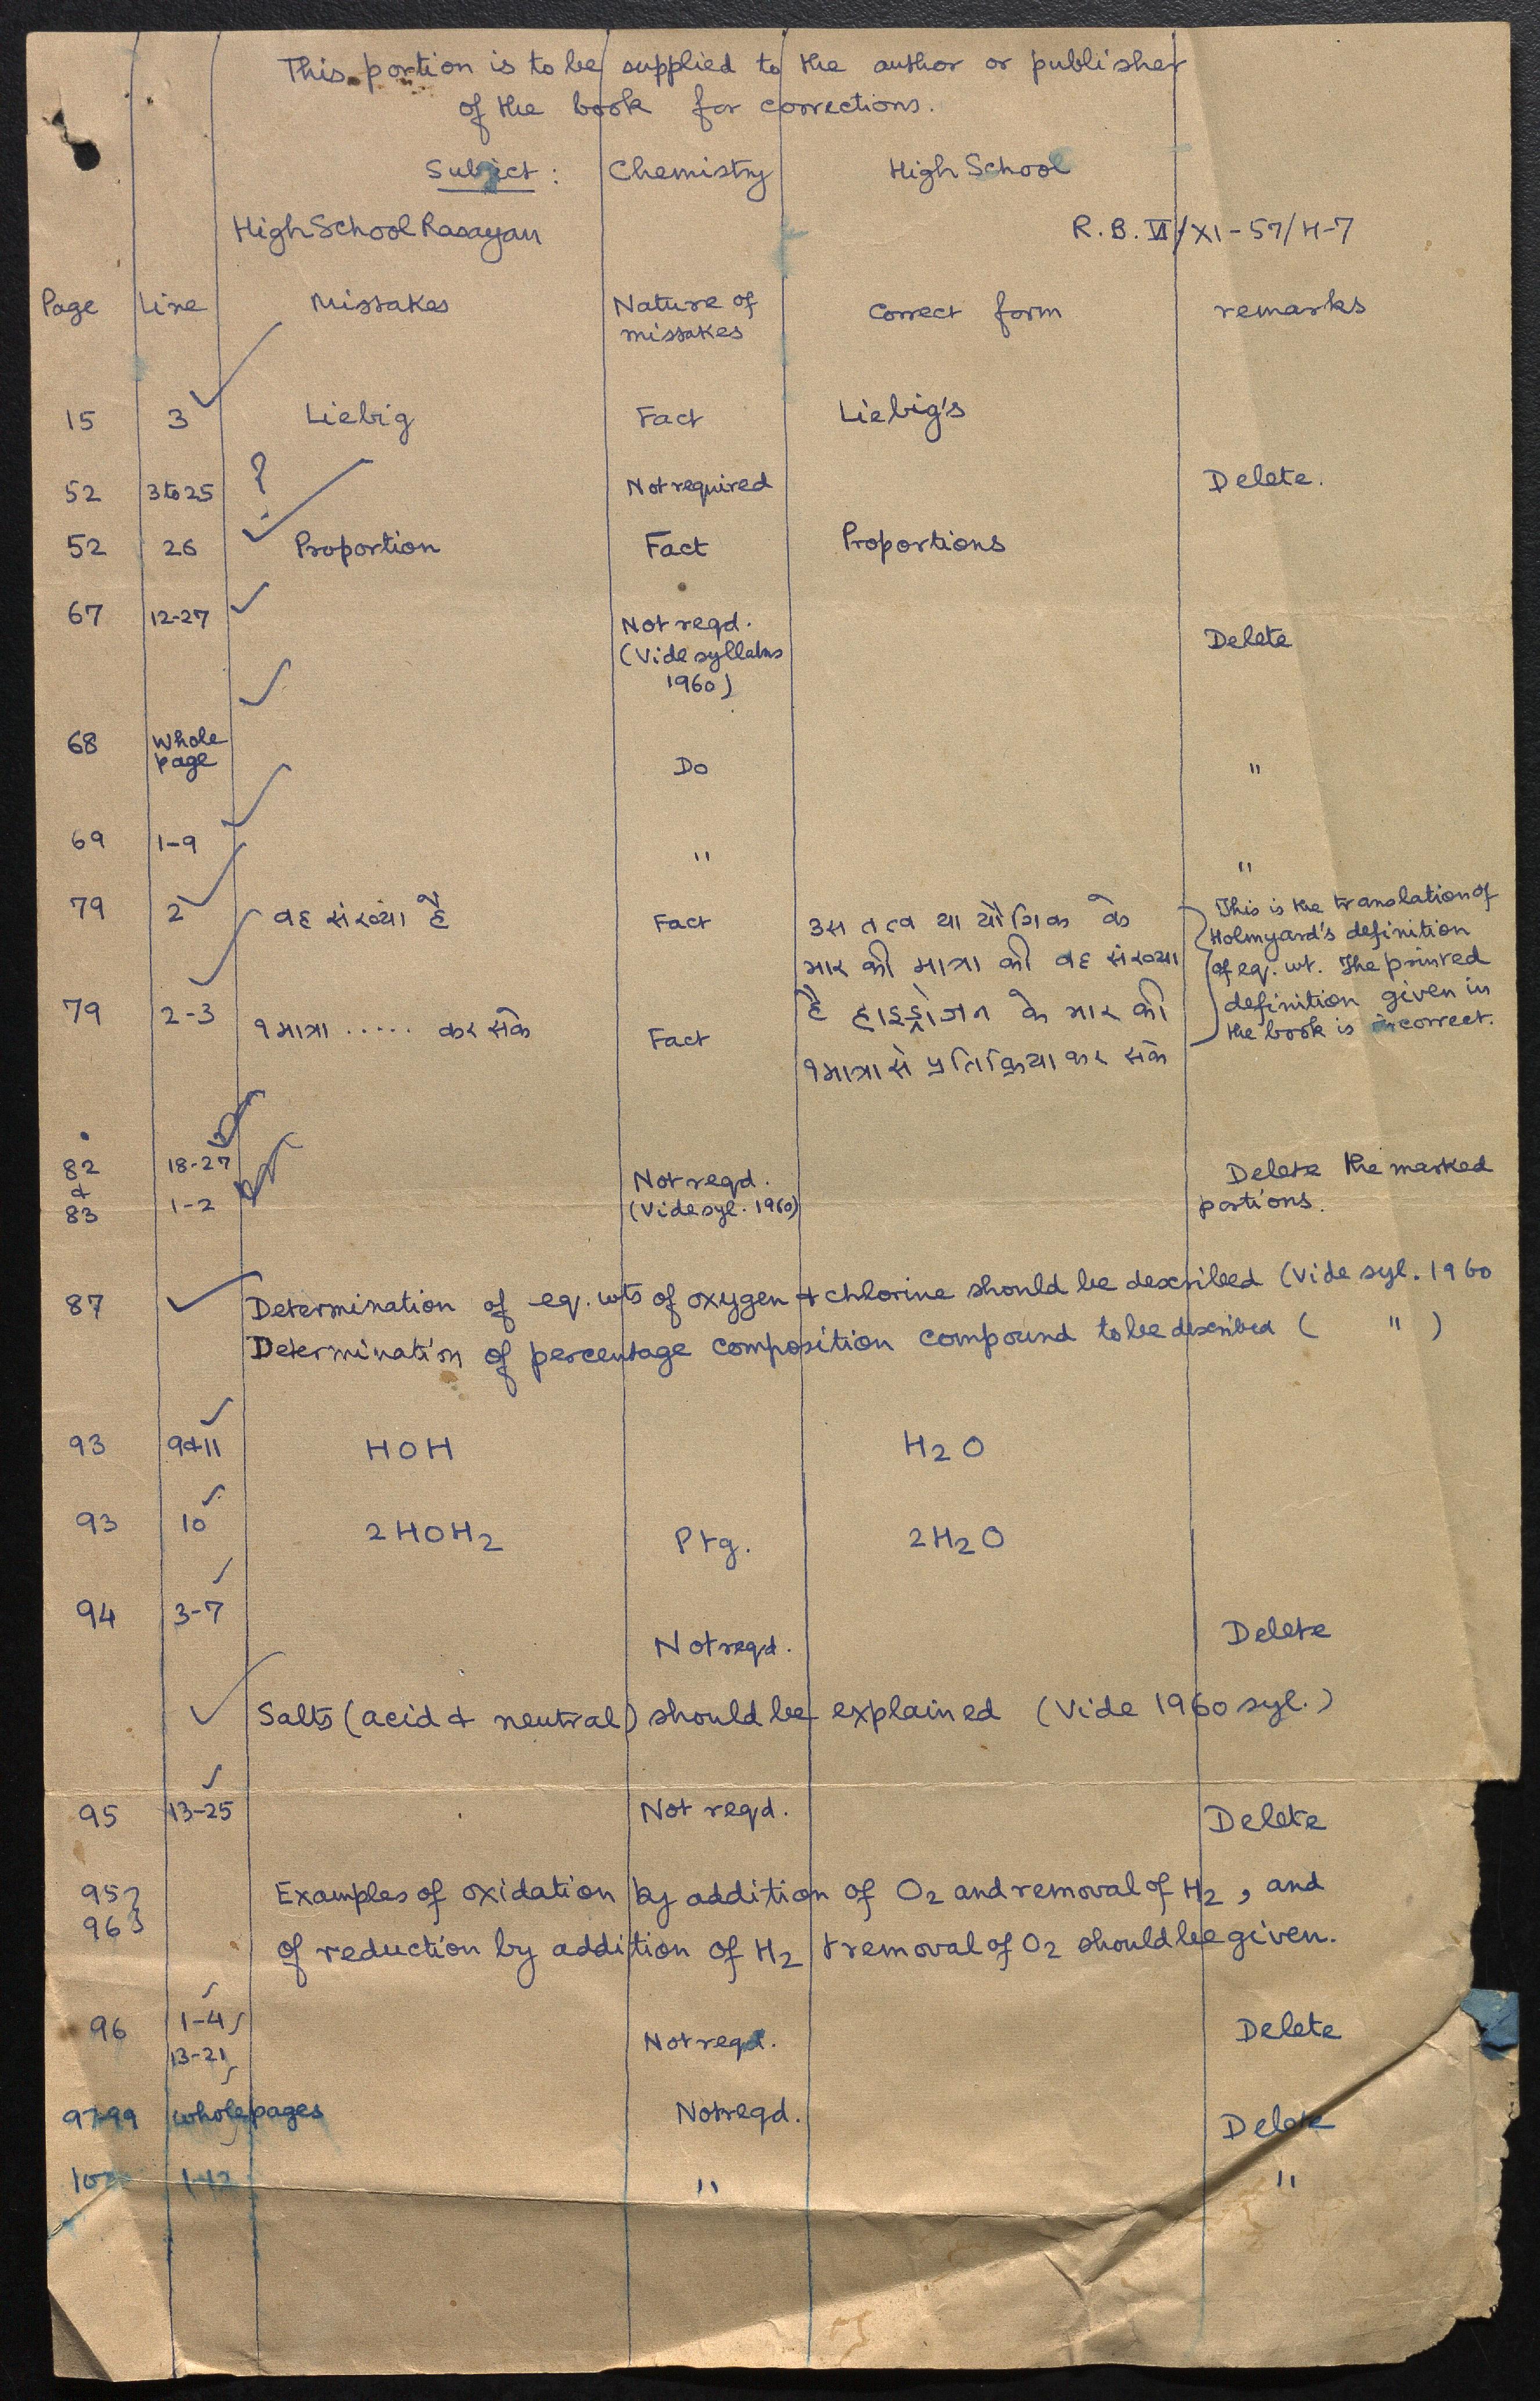 This portion is to be supplied to the author or publisher
of the book for corrections.
Subject : Chemistry High School
High School Rasayan
R.B. VI/XI-57/H-7
Page Line Mistakes Nature of mistakes Correct form remarks
15 3 Liebig Fact Liebig's
52 3 to 25 ? Not required Delete.
52 26 Proportion Fact Proportions
67 12-27 Not reqd. Delete
(Vide syllabus
1960)
68 Whole page Do "
69 1-9 " "
79 2 वह संख्या है Fact उस तत्व या यौगिक के
भार की मात्रा की वह संख्या
79 2-3 १ मात्रा ..... कर सके Fact है हाइड्रोजन के भार की
१ मात्रा से प्रतिक्रिया कर सके
This is the translation of
Holmyard's definition
of eq. wt. The printed
definition given in
the book is incorrect.
82 18-27 Not reqd. Delete the marked
& 83 1-2 (Vide syl. 1960) portions.
87 Determination of eq. wts of oxygen & chlorine should be described (Vide syl. 1960
Determination of percentage composition compound to be described ( " )
93 9&11 HOH H2O
93 10 2HOH2 Ptg. 2H2O
94 3-7 Not reqd. Delete
Salts (acid & neutral) should be explained (Vide 1960 syl.)
95 13-25 Not reqd. Delete
95} Examples of oxidation by addition of O2 and removal of H2, and
96} of reduction by addition of H2 & removal of O2 should be given.
96 1-4} Not reqd. Delete
13-21}
97-99 whole pages Not reqd. Delete
1-12 " "